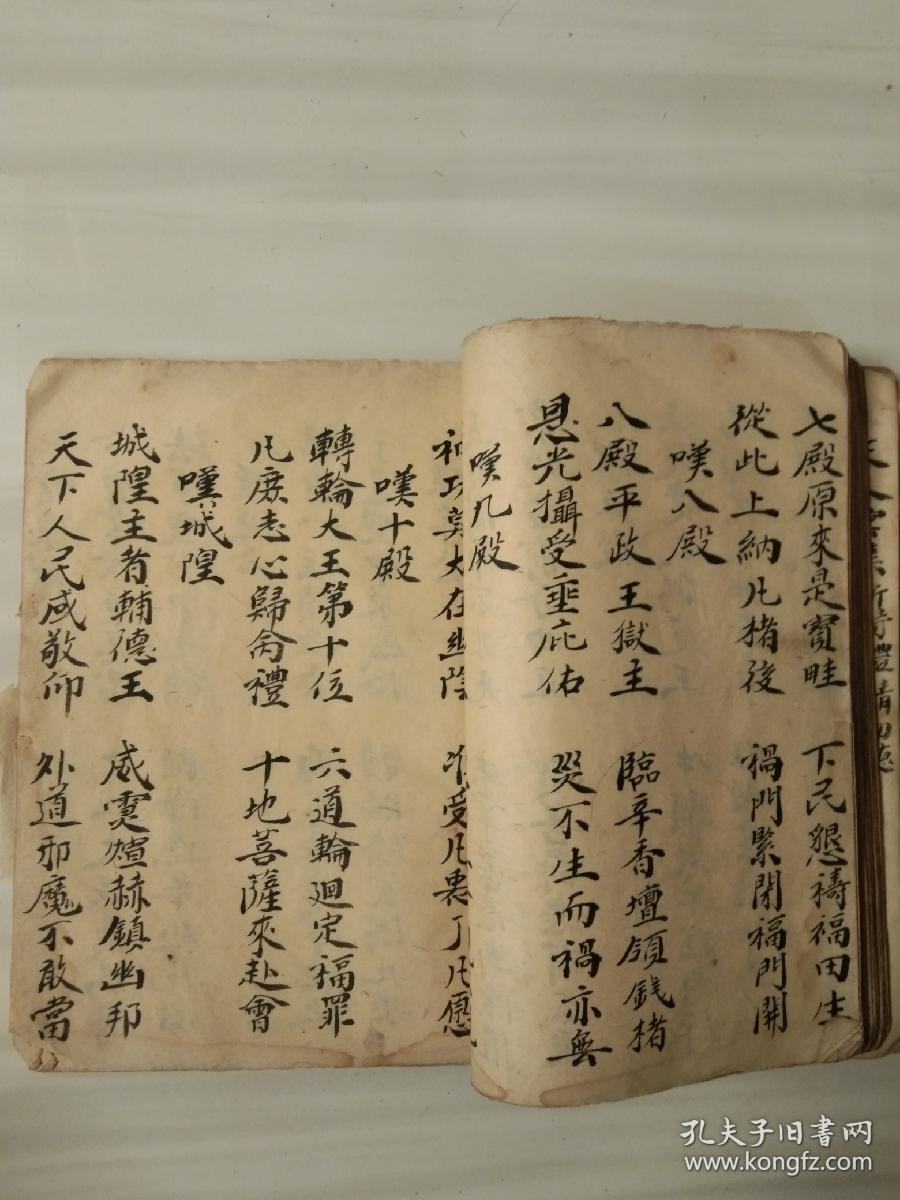 七殿原來是寳畦 下民懇禱福田生
從此上納凡楮後 禍門緊閉福門開
嘆八殿
八殿平政王獄主 臨辛香壇領錢楮
恩光攝受垂庇佑 災不生而禍亦無
嘆九殿
功莫大在幽陰 受凡農了凡愿
嘆十殿
轉輪大王第十位 六道輪迴定福罪
凡庶志心歸命禮 十地菩薩來赴會
嘆城隍
城隍主者輔德王 威靈煊赫鎮幽邦
天下人民咸敬仰 外道邪魔不敢當
孔夫子旧书网
www.kongfz.com